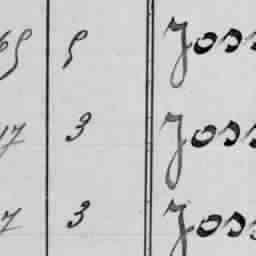 65 5 Joss
17 3 Joss
7 3 Joss